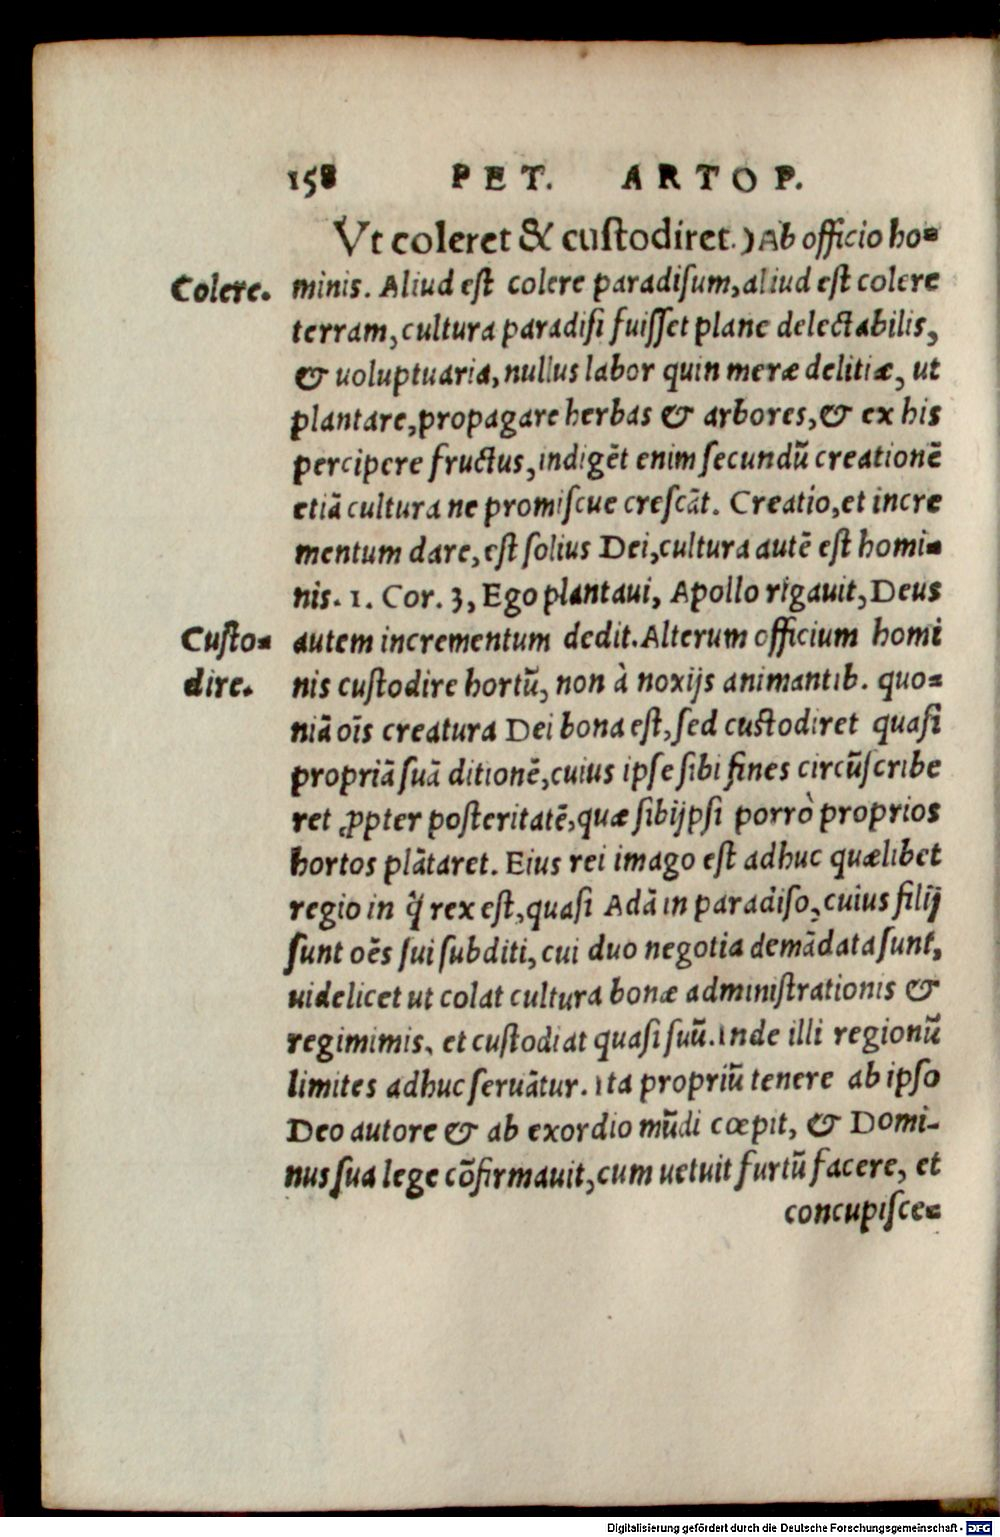 158 PET. ARTOP.
Vt coleret & cuſtodiret.) Ab officio ho=
Colere. minis. Aliud eſt colere paradiſum, aliud eſt colere
terram, cultura paradiſi fuiſſet plane delectabilis,
& uoluptuaria, nullus labor quin meræ delitiæ, ut
plantare, propagare herbas & arbores, & ex his
percipere fructus, indigēt enim ſecundū creationē
etiā cultura ne promiſcue creſcāt. Creatio, et incre
mentum dare, eſt ſolius Dei, cultura autē eſt homi=
nis. 1. Cor. 3, Ego plantaui, Apollo rigauit, Deus
Cuſto= autem incrementum dedit. Alterum officium homi
dire. nis cuſtodire hortū, non à noxijs animantib. quo=
niā oīs creatura Dei bona eſt, ſed cuſtodiret quaſi
propriā ſuā ditionē, cuius ipſe ſibi fines circūſcribe
ret ꝓpter poſteritatē, quæ ſibijpſi porrò proprios
hortos plātaret. Eius rei imago eſt adhuc quælibet
regio in q̃ rex eſt, quaſi Adā in paradiſo, cuius filij
ſunt oēs ſui ſubditi, cui duo negotia demādata ſunt,
uidelicet ut colat cultura bonæ adminiſtrationis &
regimimis, et cuſtodiat quaſi ſuū. Inde illi regionū
limites adhuc ſeruātur. Ita propriū tenere ab ipſo
Deo autore & ab exordio mūdi cœpit, & Domi-
nus ſua lege cōfirmauit, cum uetuit furtū facere, et
concupiſce=
Digitalisierung gefördert durch die Deutsche Forschungsgemeinschaft - DFG